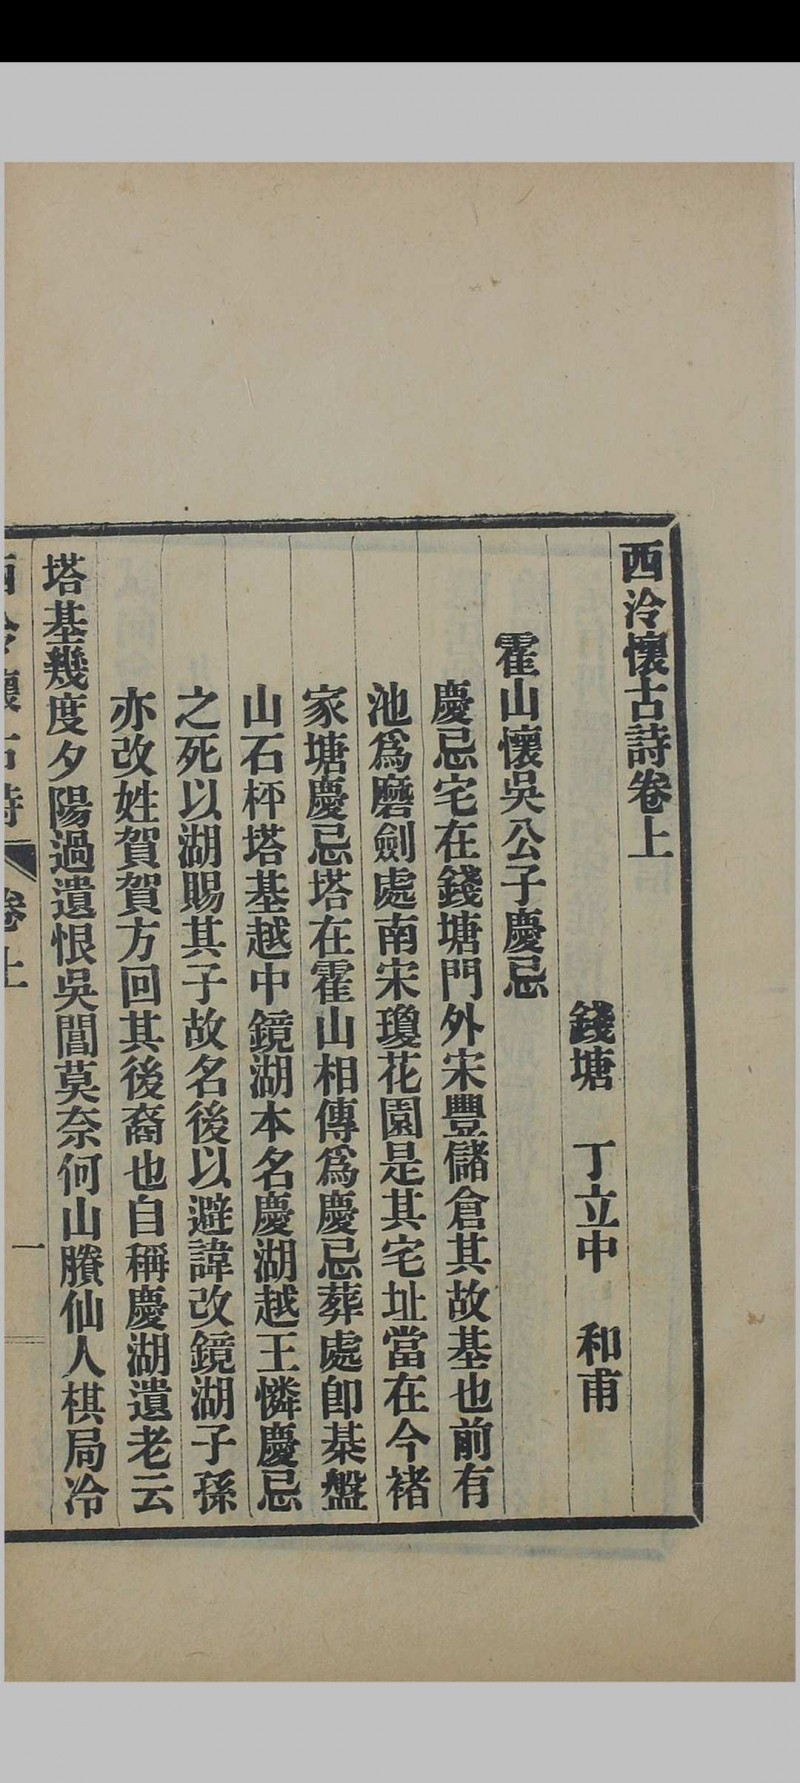 西泠懷古詩卷上
錢塘　丁立中　和甫
霍山懷吳公子慶忌
慶忌宅在錢塘門外宋豐儲倉其故基也前有
池爲磨劍處南宋瓊花園是其宅址當在今褚
家塘慶忌塔在霍山相傳爲慶忌葬處卽棊盤
山石枰塔基越中鏡湖本名慶湖越王憐慶忌
之死以湖賜其子故名後以避諱改鏡湖子孫
亦改姓賀賀方回其後裔也自稱慶湖遺老云
塔基幾度夕陽過遺恨吳閶莫奈何山賸仙人棋局冷
西泠懷古詩　卷上　一